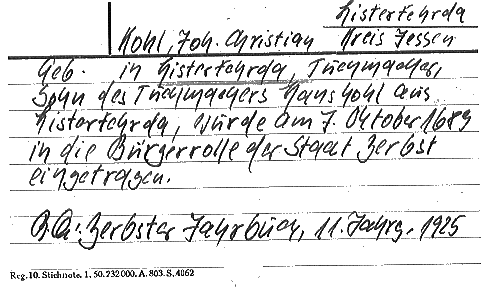 Listerfehrda
Kohl, Joh. Christian Kreis Jessen
Geb. in Listerfehrda, Tuchmacher,
Sohn des Tuchmachers Hans Kohl aus
Listerfehrda, wurde am 7. Oktober 1689
in die Bürgerrolle der Stadt Zerbst
eingetragen.
B.Qu: Zerbster Jahrbuch, 11. Jahrg. 1925
Reg. 10. Stichnote. 1. 50. 232000. A. 803. S. 4062